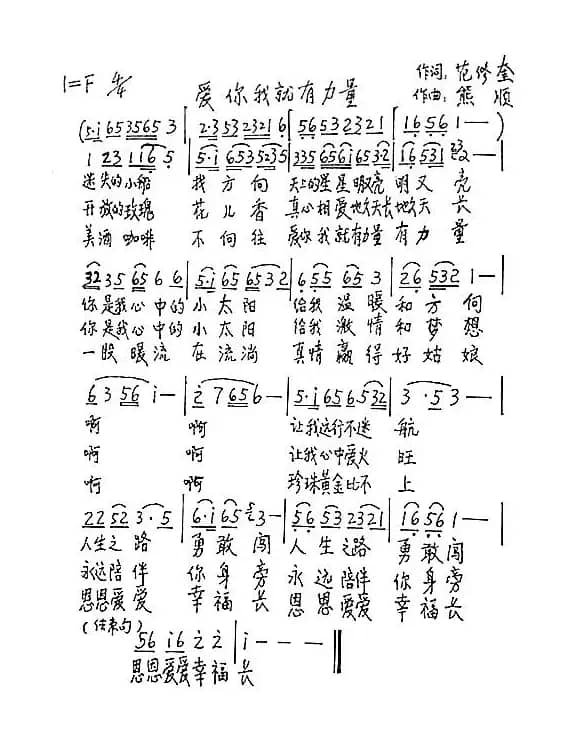 爱你我就有力量
1=F 4/4
作词:范修奎
作曲:熊顺
(5·i 653565 3 | 2·353 2321 6 | 56532321 | 1656 1—)
1 231166 5 | 5·i 653535 | 335656i6532 | 16531 2—
迷失的小船 找方向 天上的星星明又亮 明又亮
开放的玫瑰 花儿香 真心相爱地久天长地久天长
美酒咖啡 不向往 爱你我就有力量有力量
3235 65 6 6 | 5·i 65 6532 | 655 65 3 | 26 532 1—
你是我心中的小太阳 给我温暖和方向
你是我心中的小太阳 给我激情和梦想
一股暖流在流淌 真情赢得好姑娘
6 3 56 i— | 2 7 656— | 5·i 656532 | 3·53—
啊 啊 让我远行不迷航
啊 啊 让我心中爱火旺
啊 啊 珍珠黄金比不上
22 52 3·5 | 6·i 65 3— | 56 53 2321 | 16 56 1—
人生之路 勇敢闯 人生之路 勇敢闯
永远陪伴 你身旁 永远陪伴 你身旁
恩恩爱爱 幸福长 恩恩爱爱 幸福长
(结束句)
56 i6 2 2 | i———
恩恩爱爱幸福长